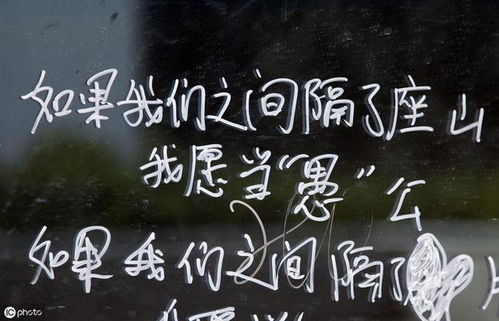 如果我们之间隔了座山
我愿当“愚”公
如果我们之间隔了
我愿当
iC photo